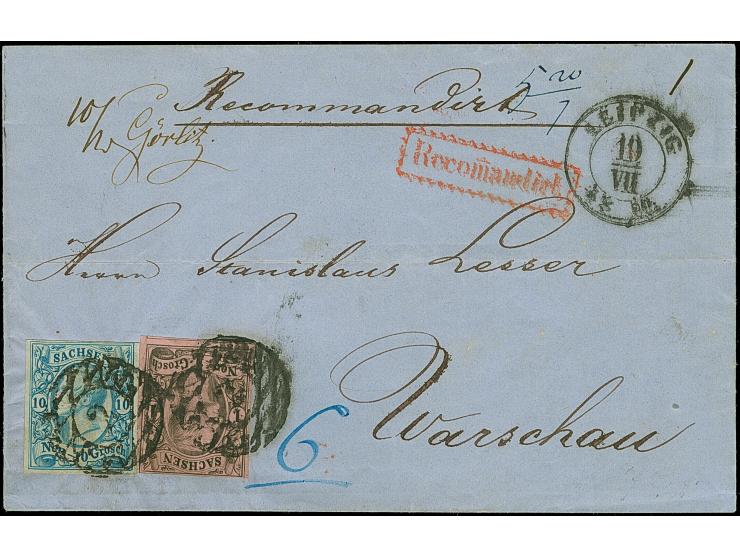 Recommandirt
5 20
7
1
10/
Görlitz
Recom̄andirt
LEIPZIG
10
VII
Herrn Stanislaus Lesser
SACHSEN
10 10
10 Grosch
1
SACHSEN
6
Warschau